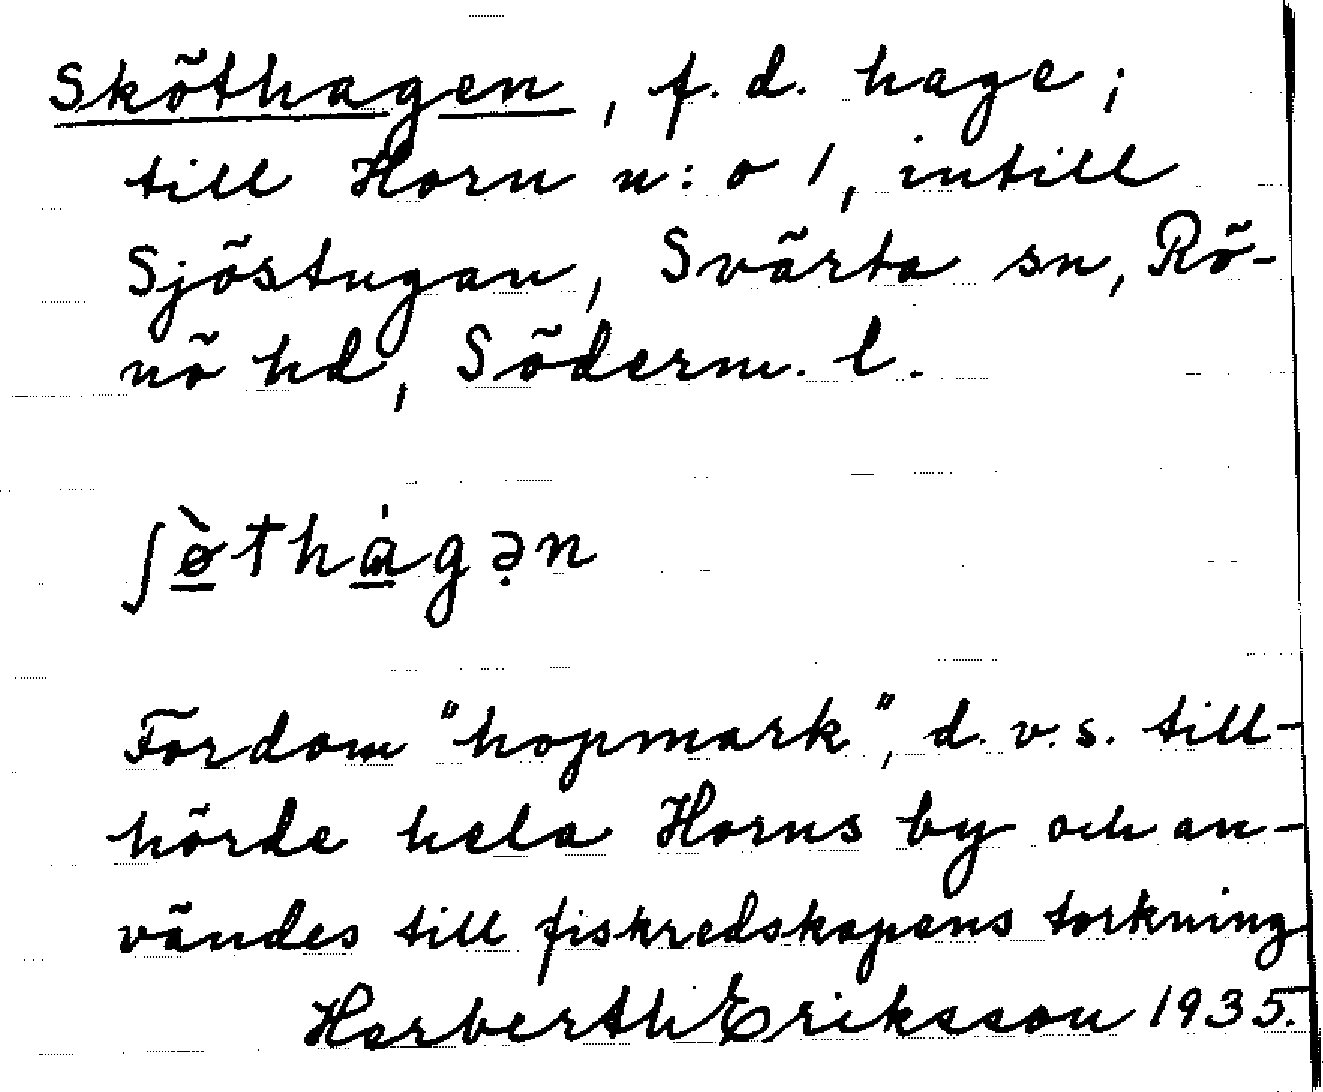 Sköthagen, f. d. hage;
till Horn n:o 1, intill
Sjöstugan, Svärta sn, Rö-
nö hd, Söderm. l.
ʃø̱̀thɑ̱́gə̣n
Fordom "hopmark", d. v. s. till-
hörde hela Horns by och an-
vändes till fiskredskapens torkning
Herberth Eriksson 1935.